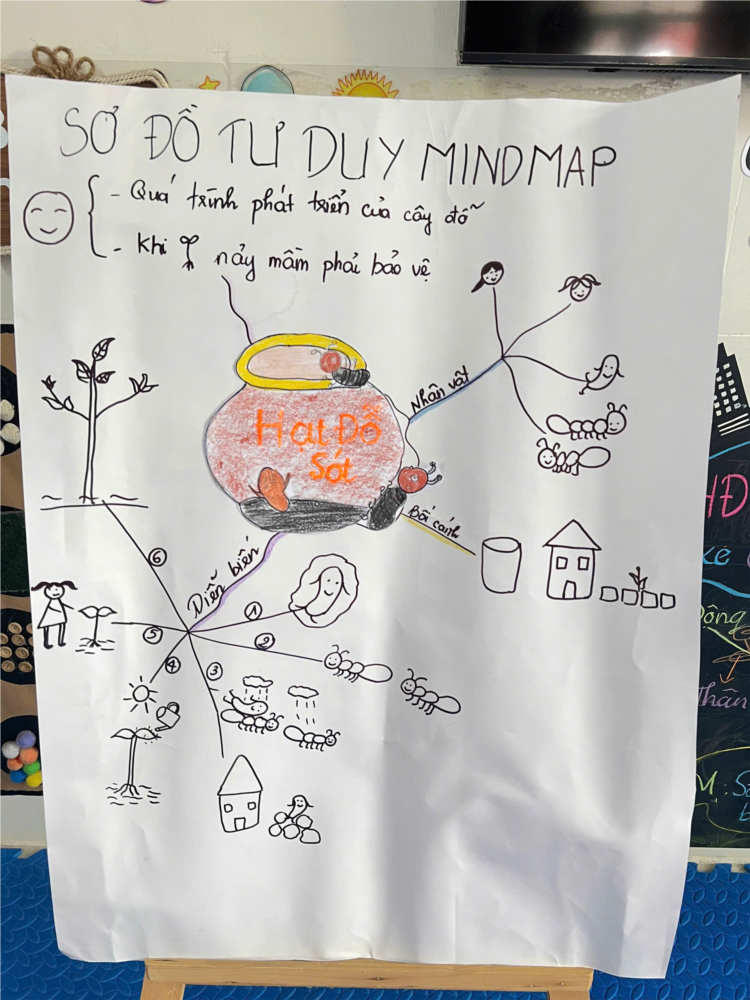 SƠ ĐỒ TƯ DUY MINDMAP
- Quá trình phát triển của cây đỗ
- Khi nảy mầm phải bảo vệ
Hạt Đỗ
Sót
Nhân vật
Bối cảnh
Diễn biến
①
②
③
④
⑤
⑥
HĐ
ke
Động
Thân
M: S